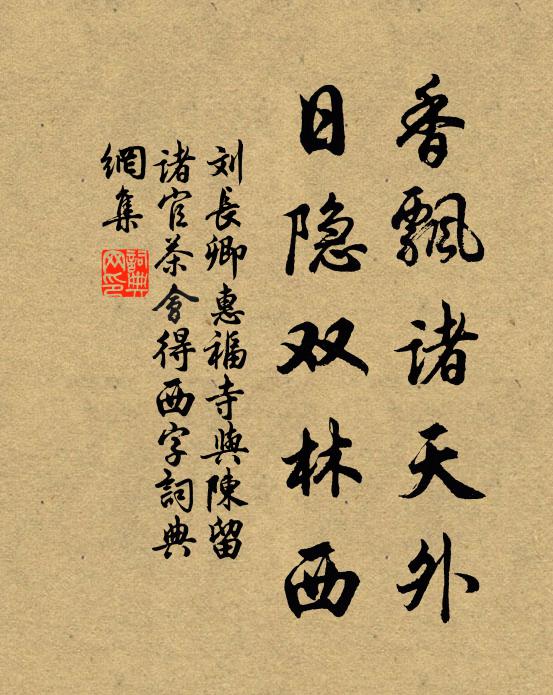 香飘诸天外
日隐双林西
刘長卿惠福寺與陳留
诸官茶會得西字詞典
網集
詞典網印